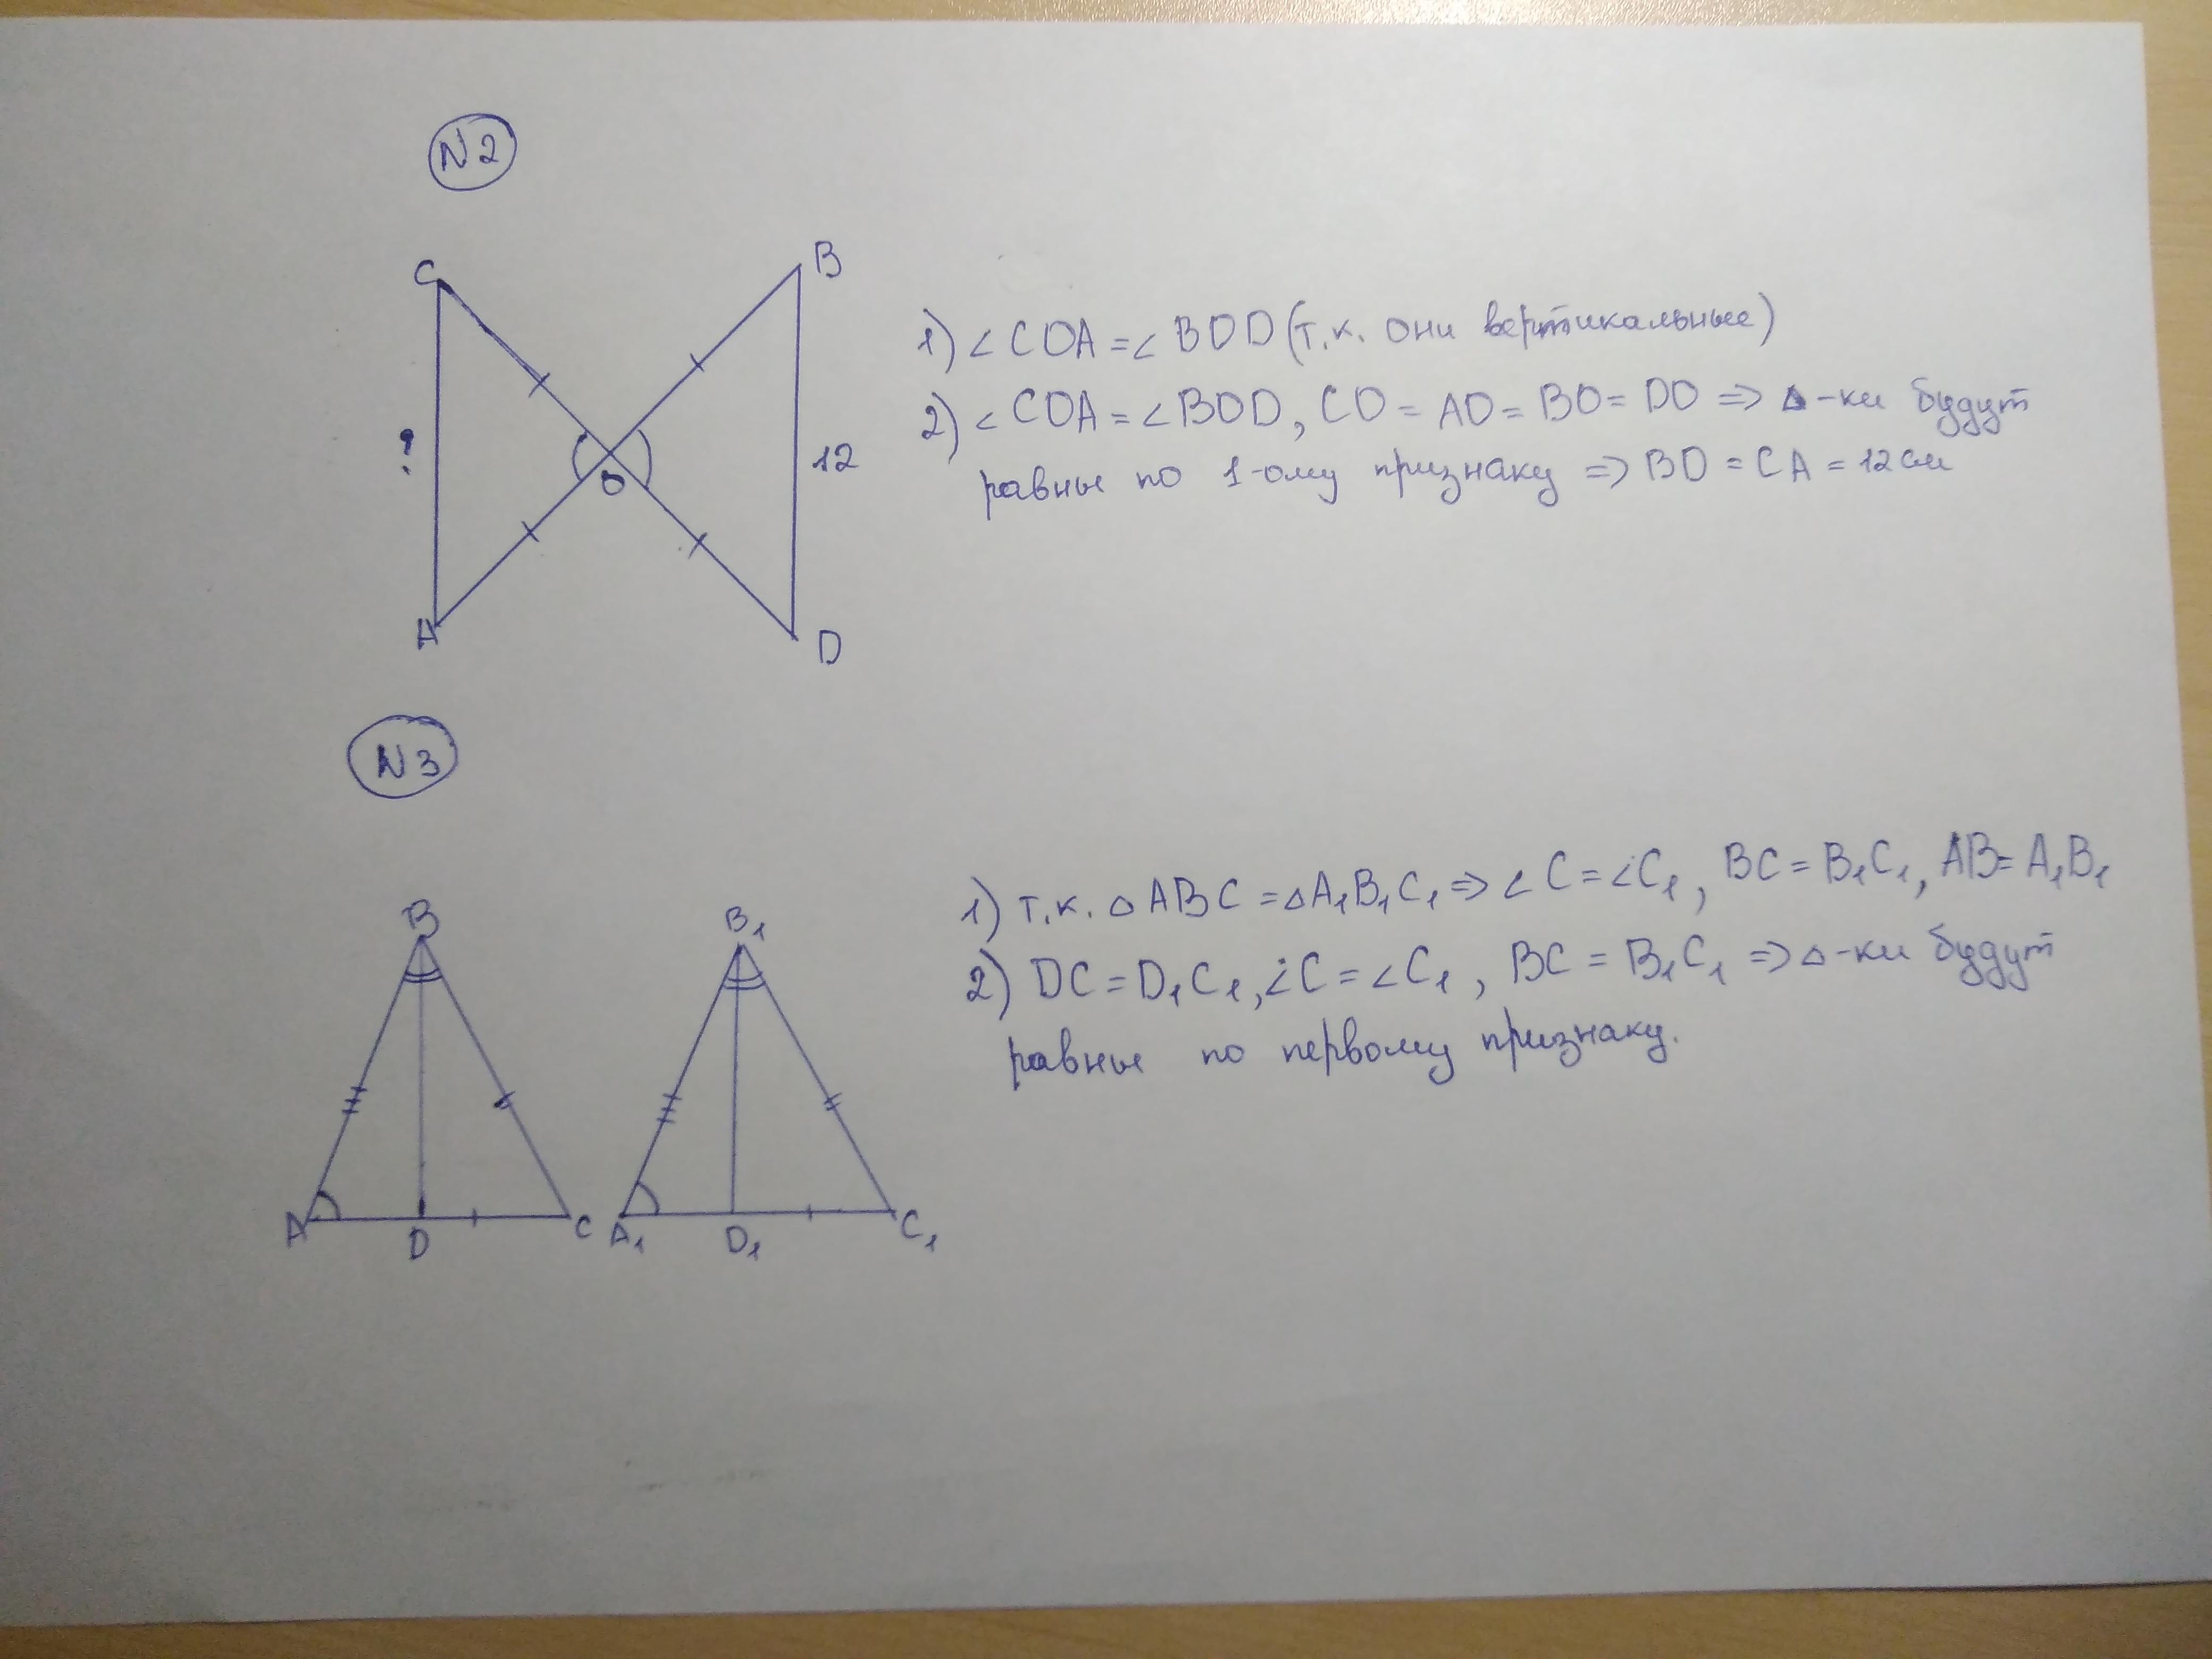 N2
C
B
?
O
12
A
D
1) ∠COA = ∠BOD (т.к. они вертикальные)
2) ∠COA = ∠BOD, CO = AO = BO = DO => △-ки будут
равны по 1-ому признаку => BD = CA = 12 см
N3
B
B₁
A
D
C
A₁
D₁
C₁
1) т.к. △ABC = △A₁B₁C₁ => ∠C = ∠C₁, BC = B₁C₁, AB = A₁B₁
2) DC = D₁C₁, ∠C = ∠C₁, BC = B₁C₁ => △-ки будут
равны по первому признаку.